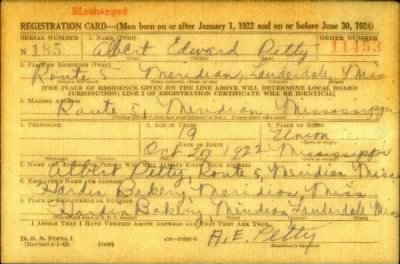 Discharged
REGISTRATION CARD—(Men born on or after January 1, 1922 and on or before June 30, 1924)
SERIAL NUMBER 1. NAME (Print) ORDER NUMBER
N 185 Albert Edward Petty 11453
2. PLACE OF RESIDENCE (Print)
Route 5 Meridian, Lauderdale, Miss
[THE PLACE OF RESIDENCE GIVEN ON THE LINE ABOVE WILL DETERMINE LOCAL BOARD
JURISDICTION; LINE 2 OF REGISTRATION CERTIFICATE WILL BE IDENTICAL]
3. MAILING ADDRESS
Route 5, Meridian Mississippi
4. TELEPHONE 5. AGE IN YEARS 6. PLACE OF BIRTH
19 Union
DATE OF BIRTH
Oct 20, 1922 Mississippi
7. NAME AND ADDRESS OF PERSON WHO WILL ALWAYS KNOW YOUR ADDRESS
Albert Petty, Route 5, Meridian Miss
8. EMPLOYER'S NAME AND ADDRESS
Hardin Bakery, Meridian Miss
Harden Bakery, Meridian Lauderdale Miss
I AFFIRM THAT I HAVE VERIFIED ABOVE ANSWERS AND THAT THEY ARE TRUE.
D. S. S. Form 1
(Revised 6-9-42)
A. E. Petty